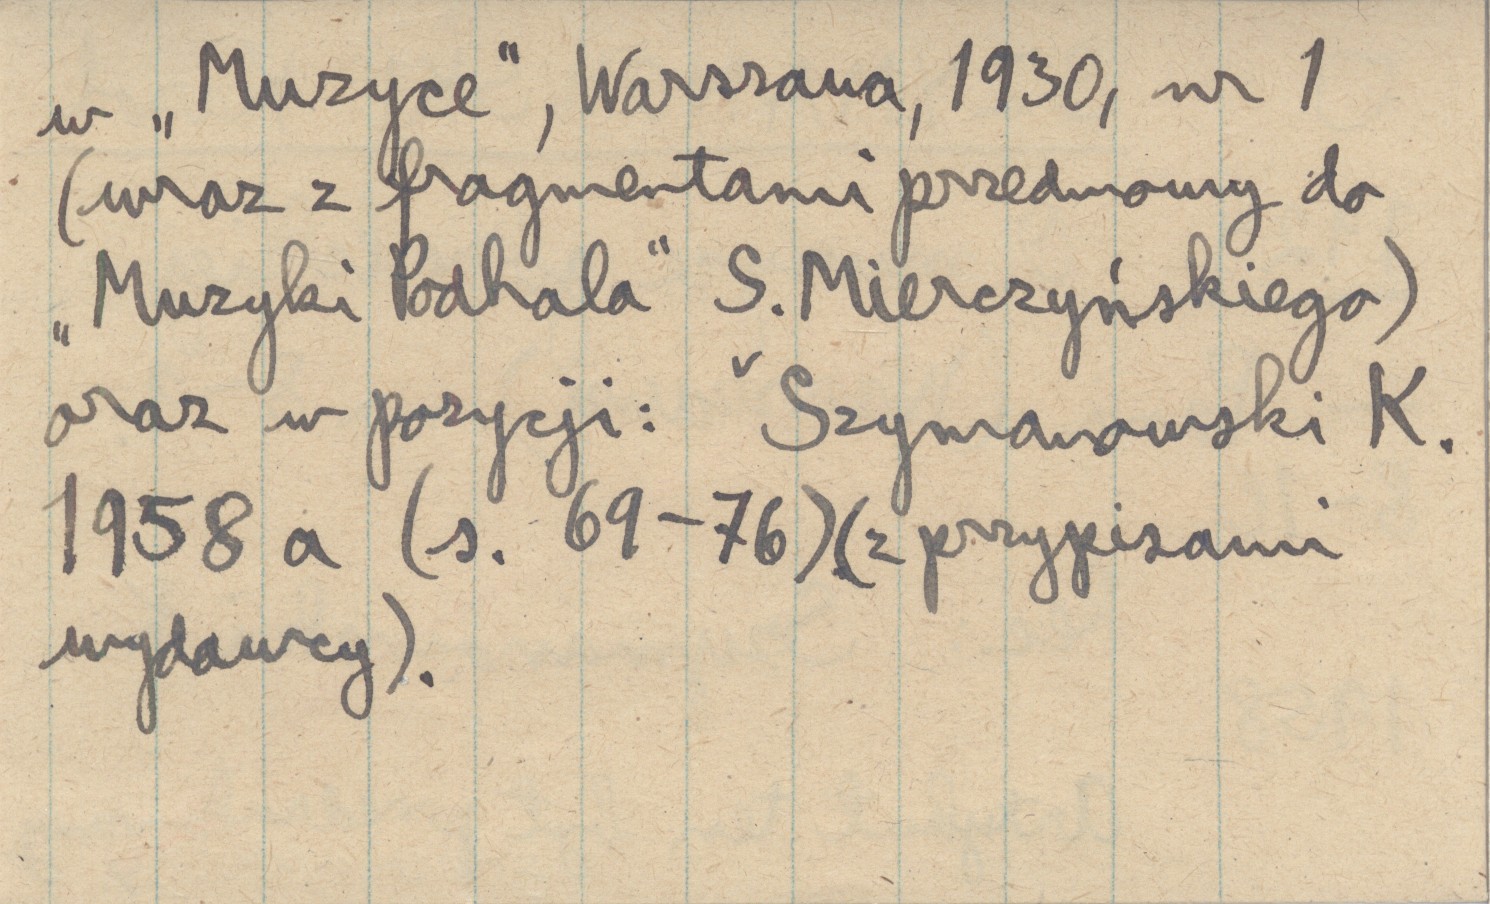 w „Muzyce", Warszawa, 1930, nr 1
(wraz z fragmentami przedmowy do
„Muzyki Podhala" S. Mierczyńskiego)
oraz w pozycji: ˇ Szymanowski K.
1958 a (s. 69-76) (z przypisami
wydawcy).